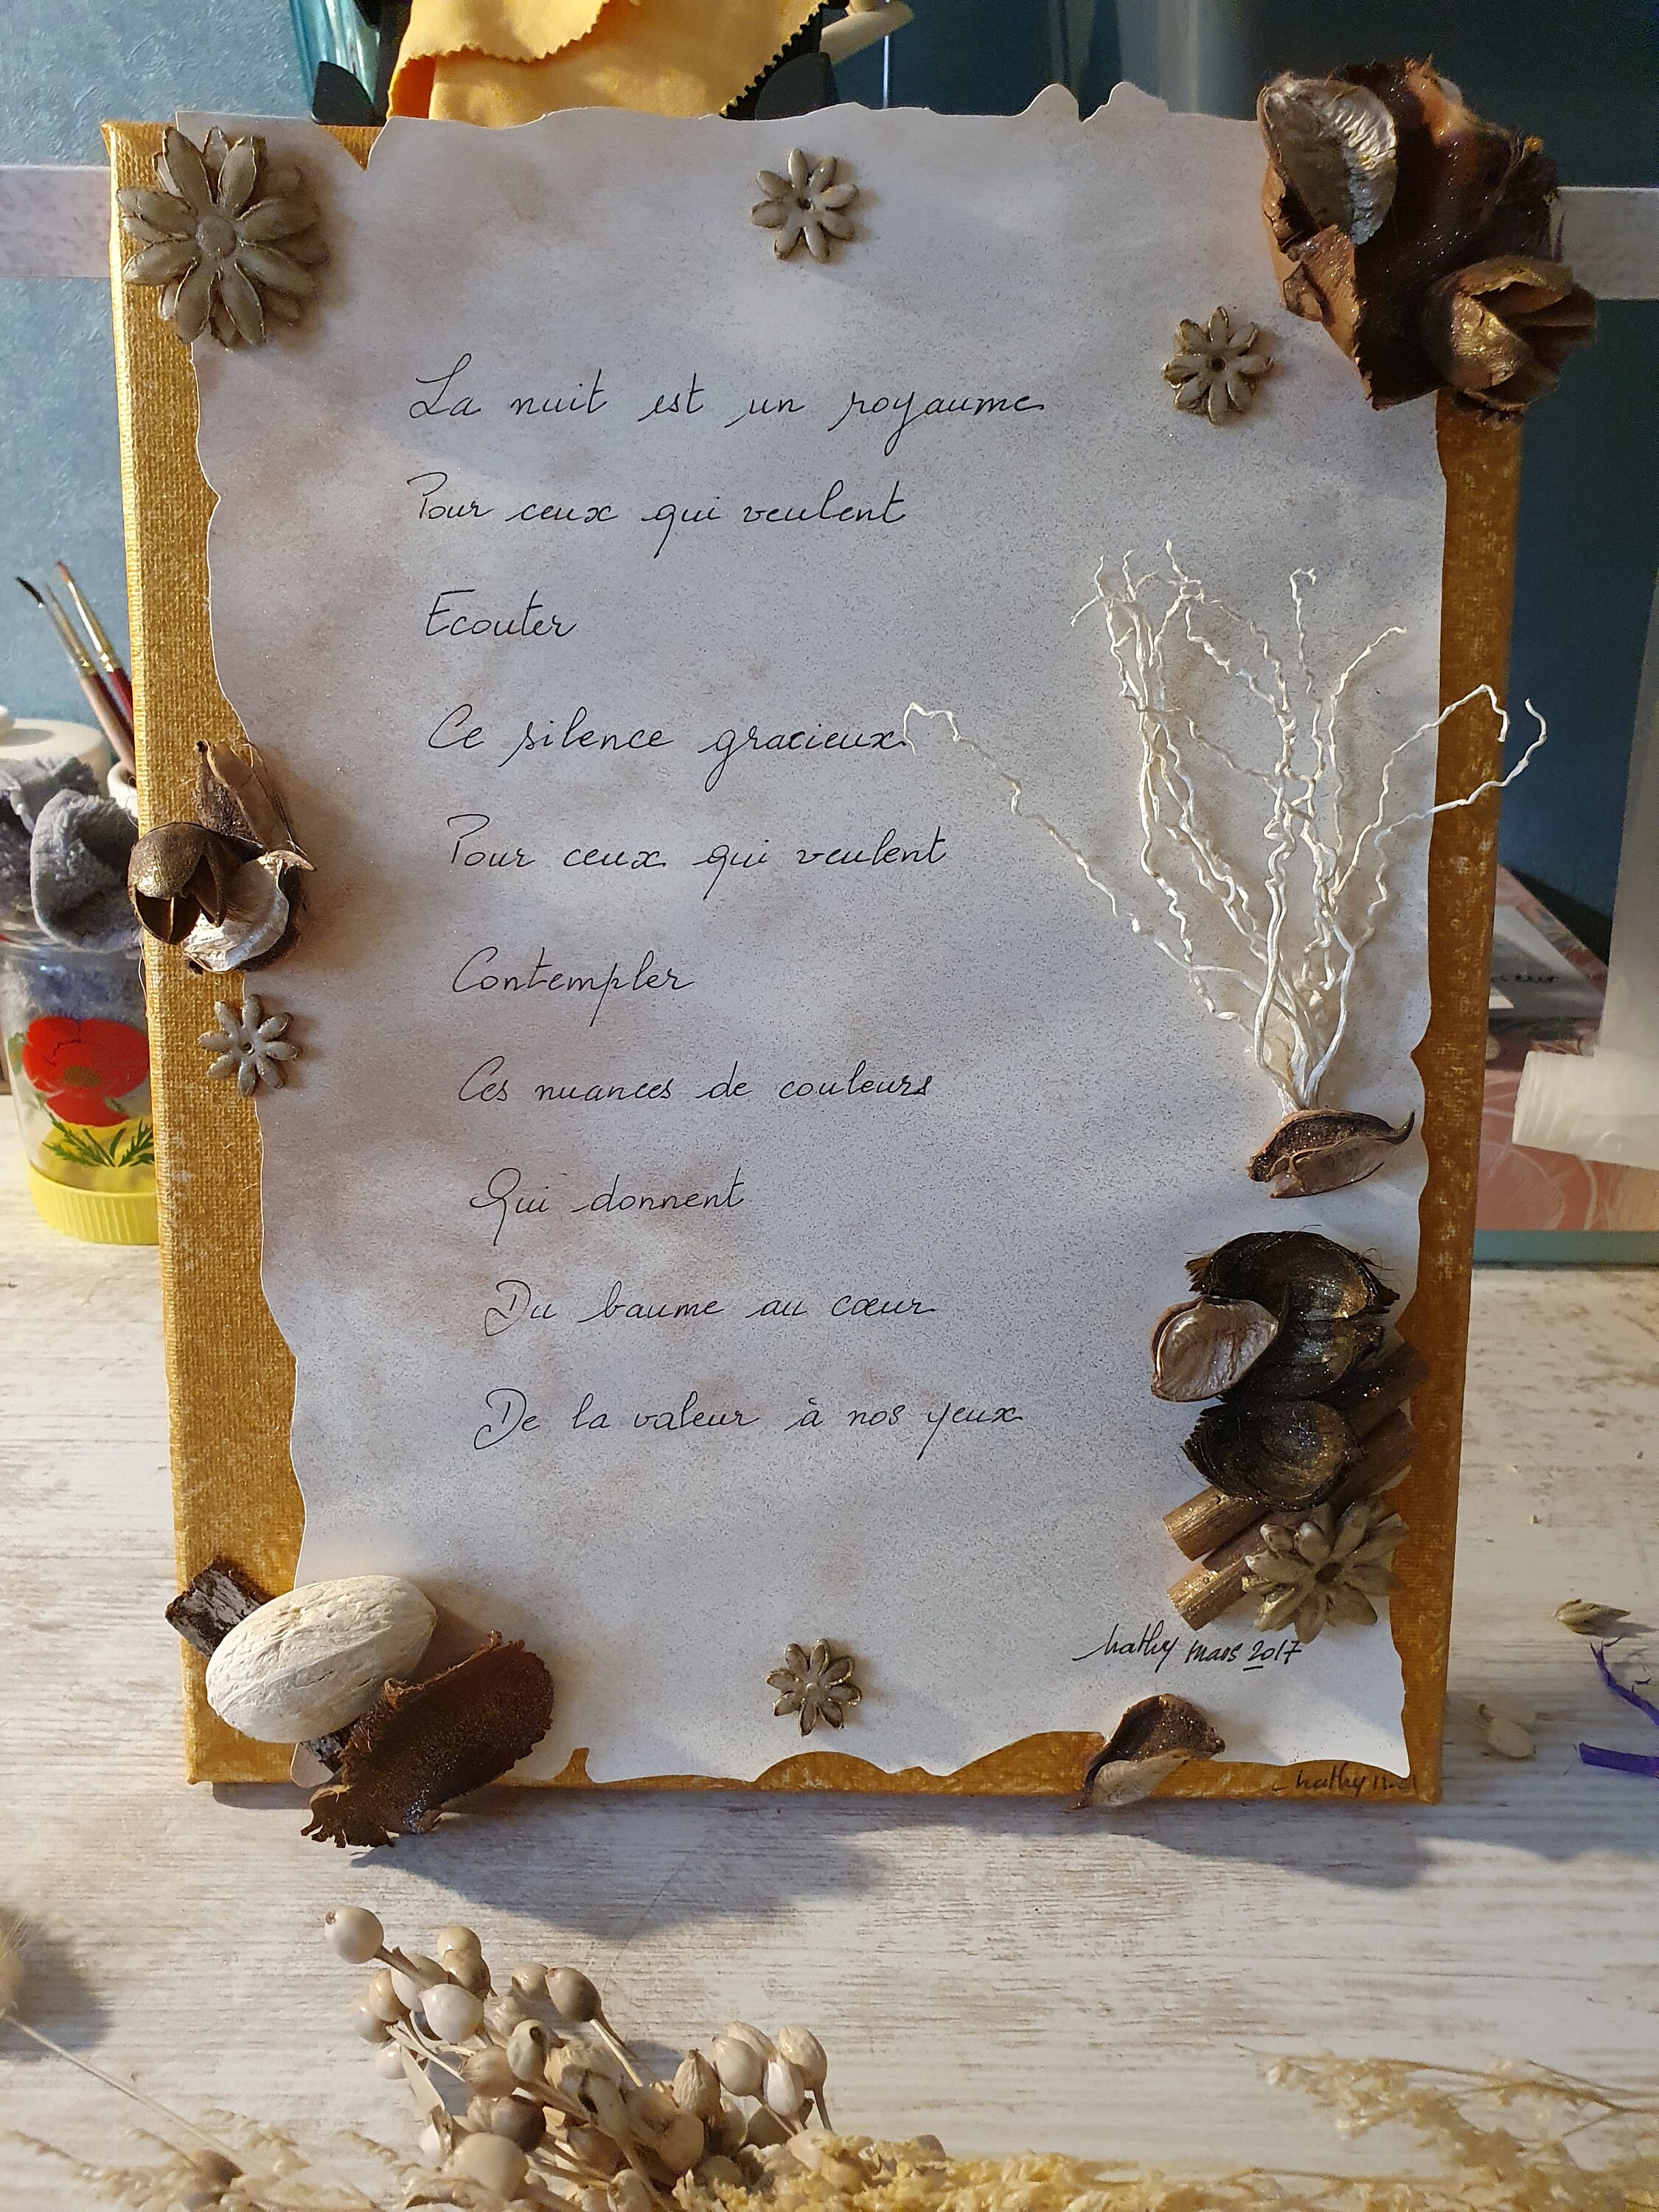 La nuit est un royaume
Pour ceux qui veulent
Ecouter
Ce silence gracieux
Pour ceux qui veulent
Contempler
Ces nuances de couleurs
Qui donnent
Du baume au cœur
De la valeur à nos yeux
hathy mars 2017
hathy